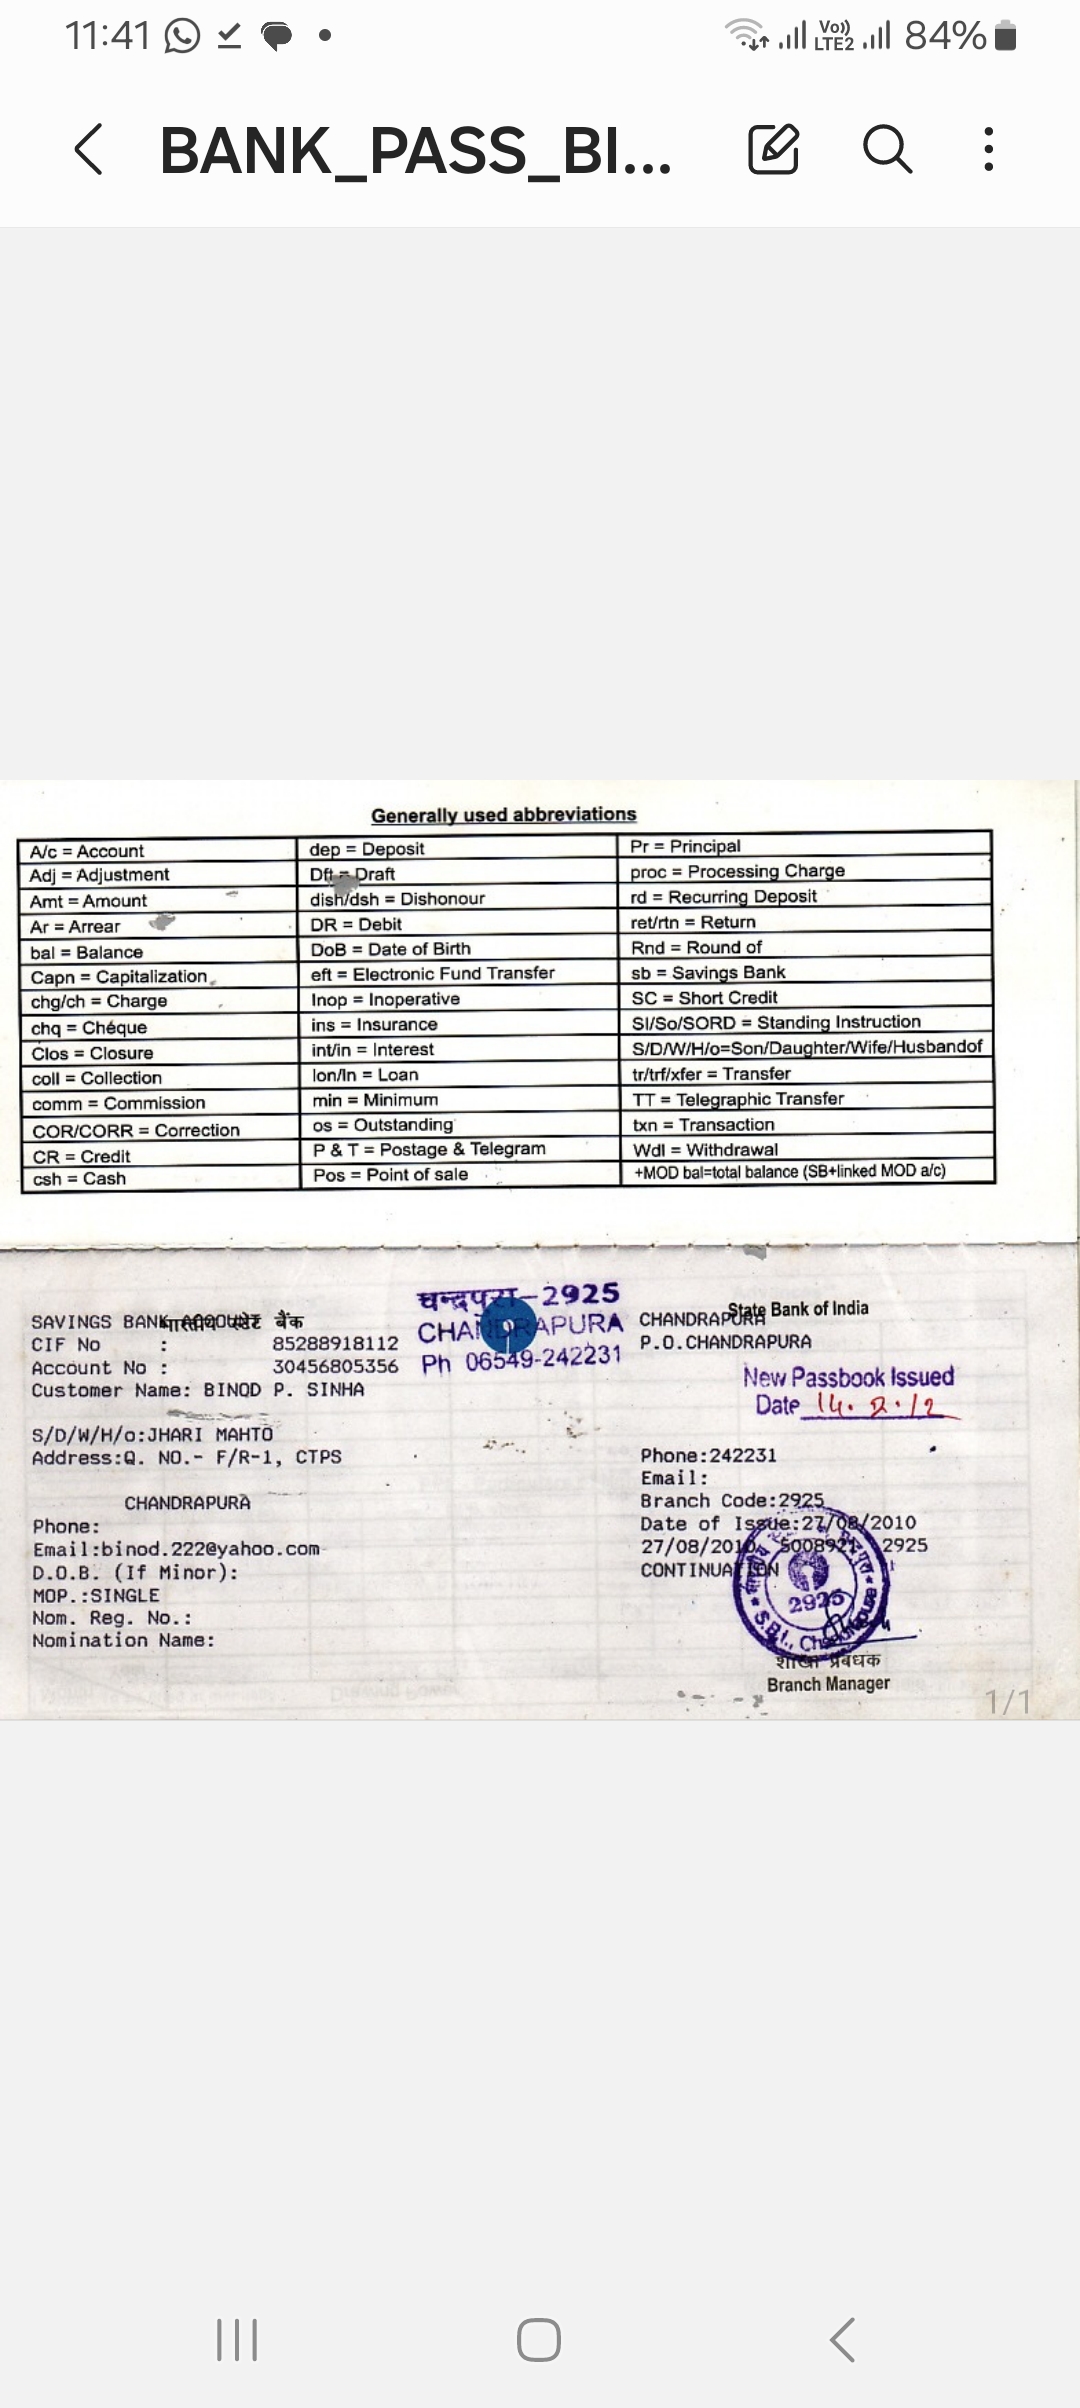 11:41
Vo)) LTE2 84%
BANK_PASS_BI...
Generally used abbreviations
A/c = Account dep = Deposit Pr = Principal
Adj = Adjustment Dft = Draft proc = Processing Charge
Amt = Amount dish/dsh = Dishonour rd = Recurring Deposit
Ar = Arrear DR = Debit ret/rtn = Return
bal = Balance DoB = Date of Birth Rnd = Round of
Capn = Capitalization eft = Electronic Fund Transfer sb = Savings Bank
chg/ch = Charge Inop = Inoperative SC = Short Credit
chq = Chéque ins = Insurance SI/So/SORD = Standing Instruction
Clos = Closure int/in = Interest S/D/W/H/o=Son/Daughter/Wife/Husbandof
coll = Collection lon/ln = Loan tr/trf/xfer = Transfer
comm = Commission min = Minimum TT = Telegraphic Transfer
COR/CORR = Correction os = Outstanding txn = Transaction
CR = Credit P & T = Postage & Telegram Wdl = Withdrawal
csh = Cash Pos = Point of sale +MOD bal=total balance (SB+linked MOD a/c)
चन्द्रपुरा-2925
CHANDRAPURA
Ph 06549-242231
SAVINGS BANK ACCOUNT
भारतीय स्टेट बैंक
CIF No : 85288918112
Account No : 30456805356
Customer Name: BINOD P. SINHA
S/D/W/H/o:JHARI MAHTO
Address:Q. NO.- F/R-1, CTPS
CHANDRAPURA
Phone:
Email:binod.222@yahoo.com
D.O.B. (If Minor):
MOP.:SINGLE
Nom. Reg. No.:
Nomination Name:
State Bank of India
CHANDRAPURA
P.O.CHANDRAPURA
New Passbook Issued
Date 14.2.12
Phone:242231
Email:
Branch Code:2925
Date of Issue:27/08/2010
27/08/2010 2925
CONTINUATION
2925
S.B.I.,
शाखा प्रबंधक
Branch Manager
1/1